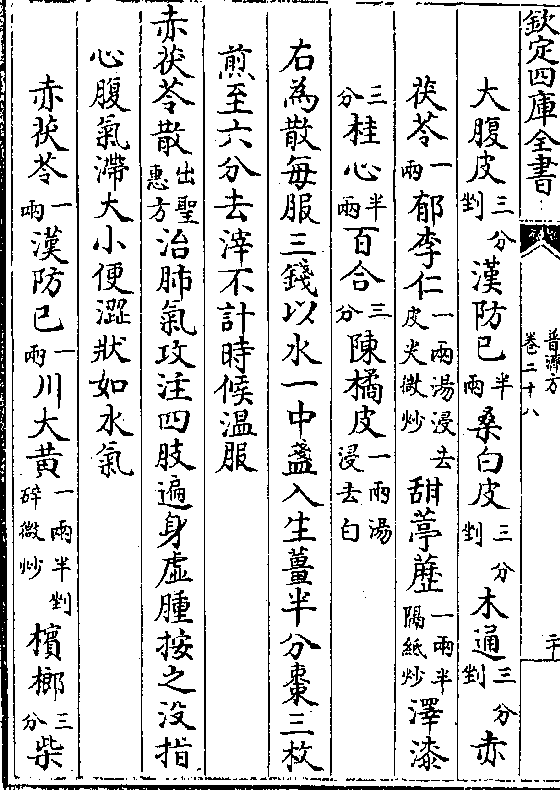 欽定四庫全書
普濟方
卷二十八
三十
大腹皮三分剉漢防已半兩桑白皮三分剉木通三分剉赤
茯苓一兩郁李仁一兩湯浸去皮尖微炒甜葶藶一兩半隔紙炒澤漆
三分桂心半兩百合三分陳橘皮一兩湯浸去白
右為散每服三錢以水一中盞入生薑半分棗三枚
煎至六分去滓不計時候温服
赤茯苓散出聖惠方治肺氣攻注四肢遍身虛腫按之没指
心腹氣滯大小便澀狀如水氣
赤茯苓一兩漢防已一兩川大黄一兩半剉碎微炒檳榔三分柴